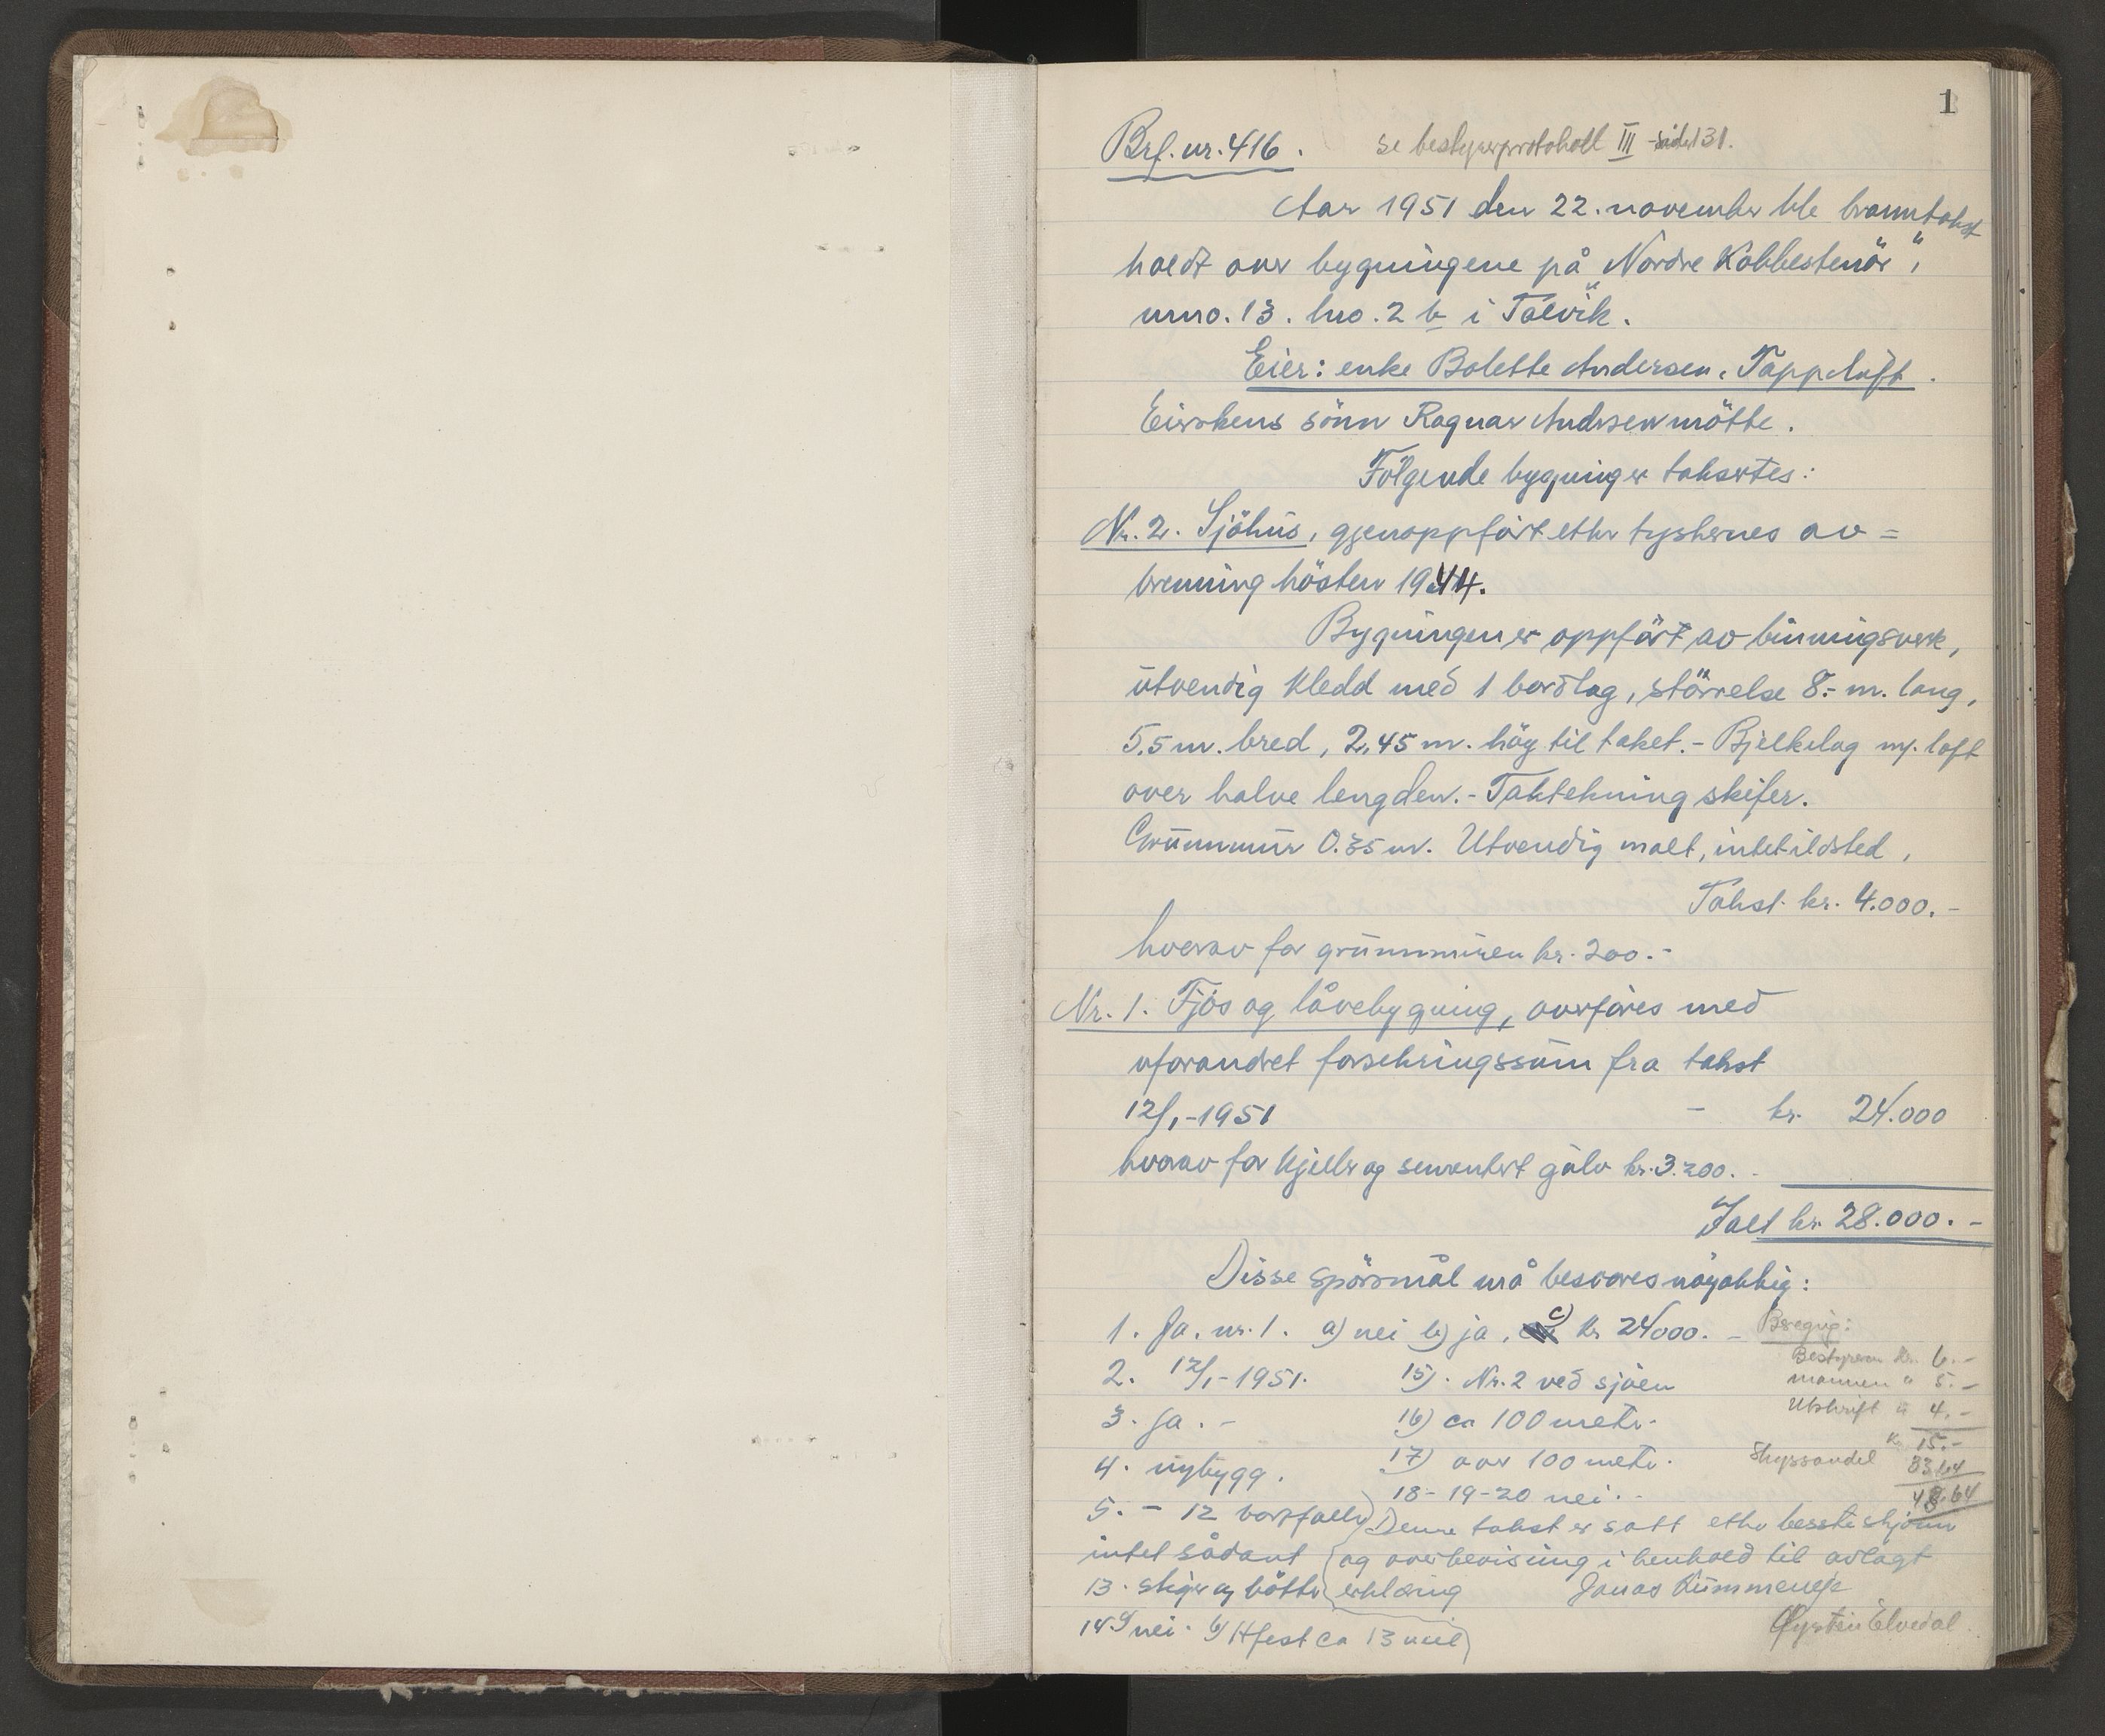 1
Brf. nr. 416. se bestyrerprotokoll III side 131.
Aar 1951 den 22. november ble branntakst
holdt over bygningene på "Nordre Kobbestenör",
mno. 13. lno. 2 b i Talvik.
Eier: enke Bolette Andersen, Tappeluft.
Eierskens sönn Ragnar Andersen mötte.
Fölgende bygninger takseres:
Nr. 2. Sjöhus, gjenoppfört etter tyskernes av=
brenning hösten 1944.
Bygningen er oppfört av binningsverk,
utvendig kledd med 1 bordlag, störrelse 8.- m. lang,
5,5 m. bred, 2,45 m. höy til taket.- Bjelkelag m/. loft
over halve lengden.- Taktekning skifer.
Grunnmur 0.35 m. Utvendig malt, intet ildsted,
Takst kr. 4.000.-
hvorav for grunnmuren kr. 200.-
Nr. 1. Fjös og låvebygning, overföres med
uforandret forsikringssum fra takst
12/1-1951 - kr. 24.000
hvorav for kjeller og sementert golv kr. 3.200.-
Ialt kr. 28.000.-
Disse spörsmål må besvares nöyaktig:
1. Ja. nr. 1. a) nei b) ja, c) kr 24000. - Beregng:
2. 12/1-1951. 15). Nr. 2 ved sjöen Bestyreren kr. 6.-
mannen " 5.-
3. Ja.- 16) ca 100 meter. Utskrift " 4.-
kr 15.-
4. nybygg. 17) over 100 meter. Skyssandel 33,64
18-19-20 nei.- 48,64
5.- 12 bortfaller Denne takst er satt etter beste skjönn
intet sådant og overbevisning i henhold til avlagt
13. stiger og bötter erklæring Jonas Kummeneje
14. a) nei. b) Hfest ca 13 mil Øystein Elvedal